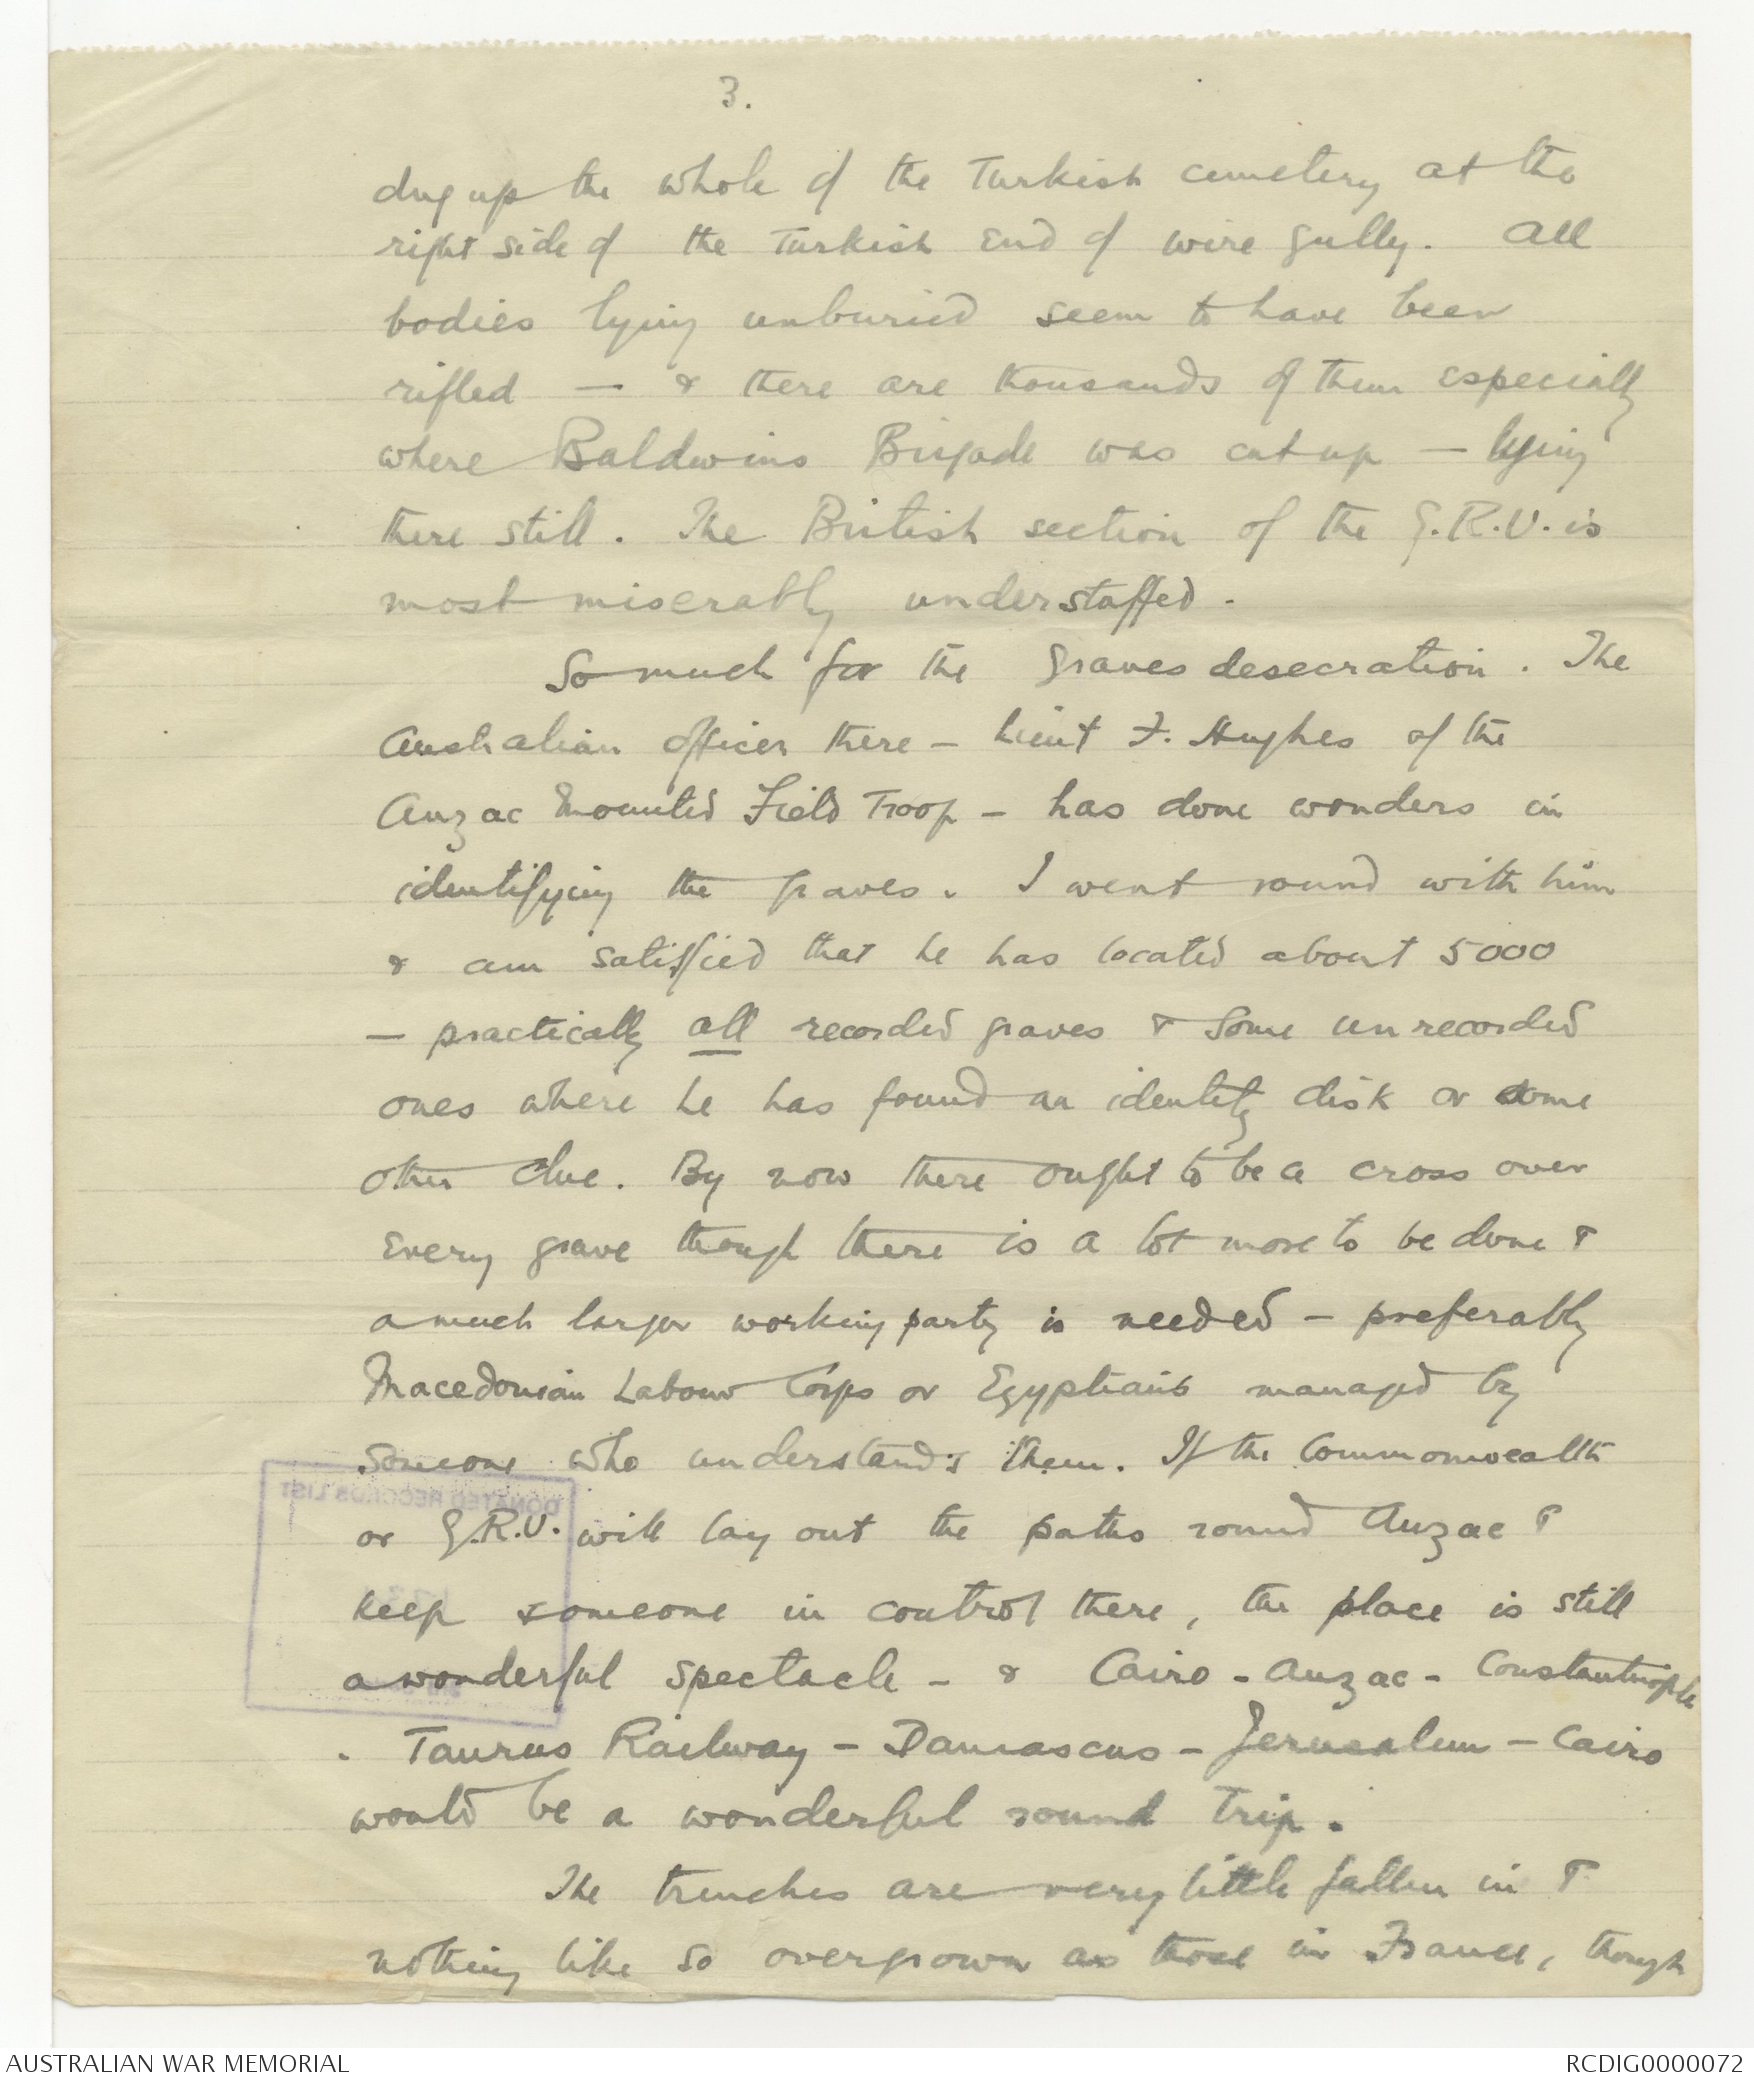 3.
dug up the whole of the Turkish cemetery at the
right side of the Turkish End of wire gully. All
bodies lying unburied seem to have been
rifled — & there are thousands of them especially
where Baldwins Brigade was cut up — lying
there still. The British section of the G.R.U. is
most miserably understaffed.
So much for the graves desecration. The
Australian officer there — Lieut F. Hughes of the
Anzac Mounted Field Troop — has done wonders in
identifying the graves. I went round with him
& am satisfied that he has located about 5000
— practically all recorded graves & some unrecorded
ones where he has found an identity disk or some
other clue. By now there ought to be a cross over
every grave though there is a lot more to be done &
a much larger working party is needed — preferably
Macedonian Labour Corps or Egyptians managed by
someone who understands them. If the Commonwealth
or G.R.U. will lay out the paths round Anzac &
keep someone in control there, the place is still
a wonderful spectacle — & Cairo - Anzac - Constantinople
- Taurus Railway — Damascus — Jerusalem — Cairo
would be a wonderful round trip.
The trenches are very little fallen in &
nothing like so overgrown as those in France, though
DONATED RECORDS LIST
AUSTRALIAN WAR MEMORIAL
RCDIG0000072